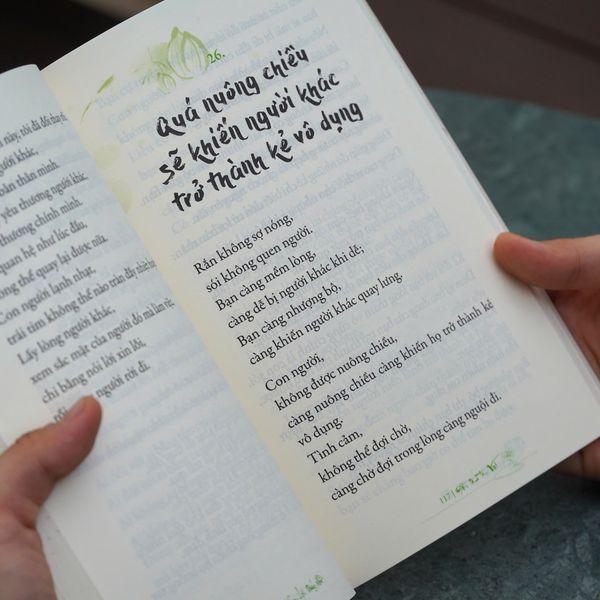 này, rồi đã đổi thay
người khác,
bản thân mình.
yêu thương người khác
thương chính mình.
quan hệ như lúc đầu,
ông thể quay lại được nữa.
Con người lạnh nhạt,
trái tim không thể nào tràn đầy
Lấy lòng người khác,
xem sắc mặt của người đó mà
chi bằng nói lời xin lỗi,
người rời đi.
26.
Quá nuông chiều
sẽ khiến người khác
trở thành kẻ vô dụng
Rắn không sợ nóng,
sói không quen người.
Bạn càng mềm lòng,
càng dễ bị người khác khi dễ;
Bạn càng nhượng bộ,
càng khiến người khác quay lưng.
Con người,
không được nuông chiều,
càng nuông chiều càng khiến họ trở thành kẻ
vô dụng.
Tình cảm,
không thể đợi chờ,
càng chờ đợi trong lòng càng nguội đi.
117